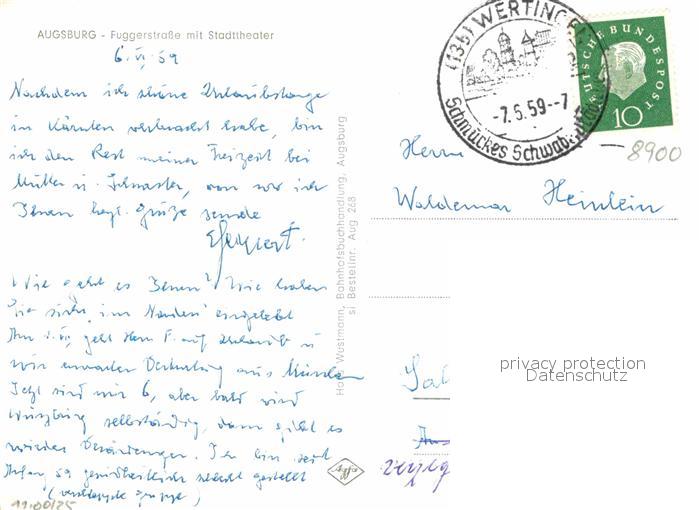 AUGSBURG - Fuggerstraße mit Stadttheater
6. VI. 59
Nachdem ich schöne Urlaubstage
in Kärnten verbracht habe, bin
ich den Rest meiner Freizeit bei
Mutter u. Schwester, von wo ich
Ihnen herzl. Grüße sende
Wie geht es Ihnen? Wie haben
Sie sich "im Norden" eingelebt
geht Herr F. auf Urlaub u
wir erwarten Vertretung aus München
Jetzt sind wir 6, aber bald wird
Würzburg selbständig, dann gibt es
wieder Veränderungen. Ich bin seit
Anfang 59 gesundheitlich schlecht gestellt
(verschleppte Grippe)
11.00/25
Hans Wüstmann, Bahnhofsbuchhandlung, Augsburg
si Bestellnr. Aug 268
Agfa
(13b) WERTINGEN
-7.6.59--7
Schmuckes Schwaben
DEUTSCHE BUNDESPOST
10
8900
Herrn
Waldemar Heinlein
privacy protection
Datenschutz
Sal